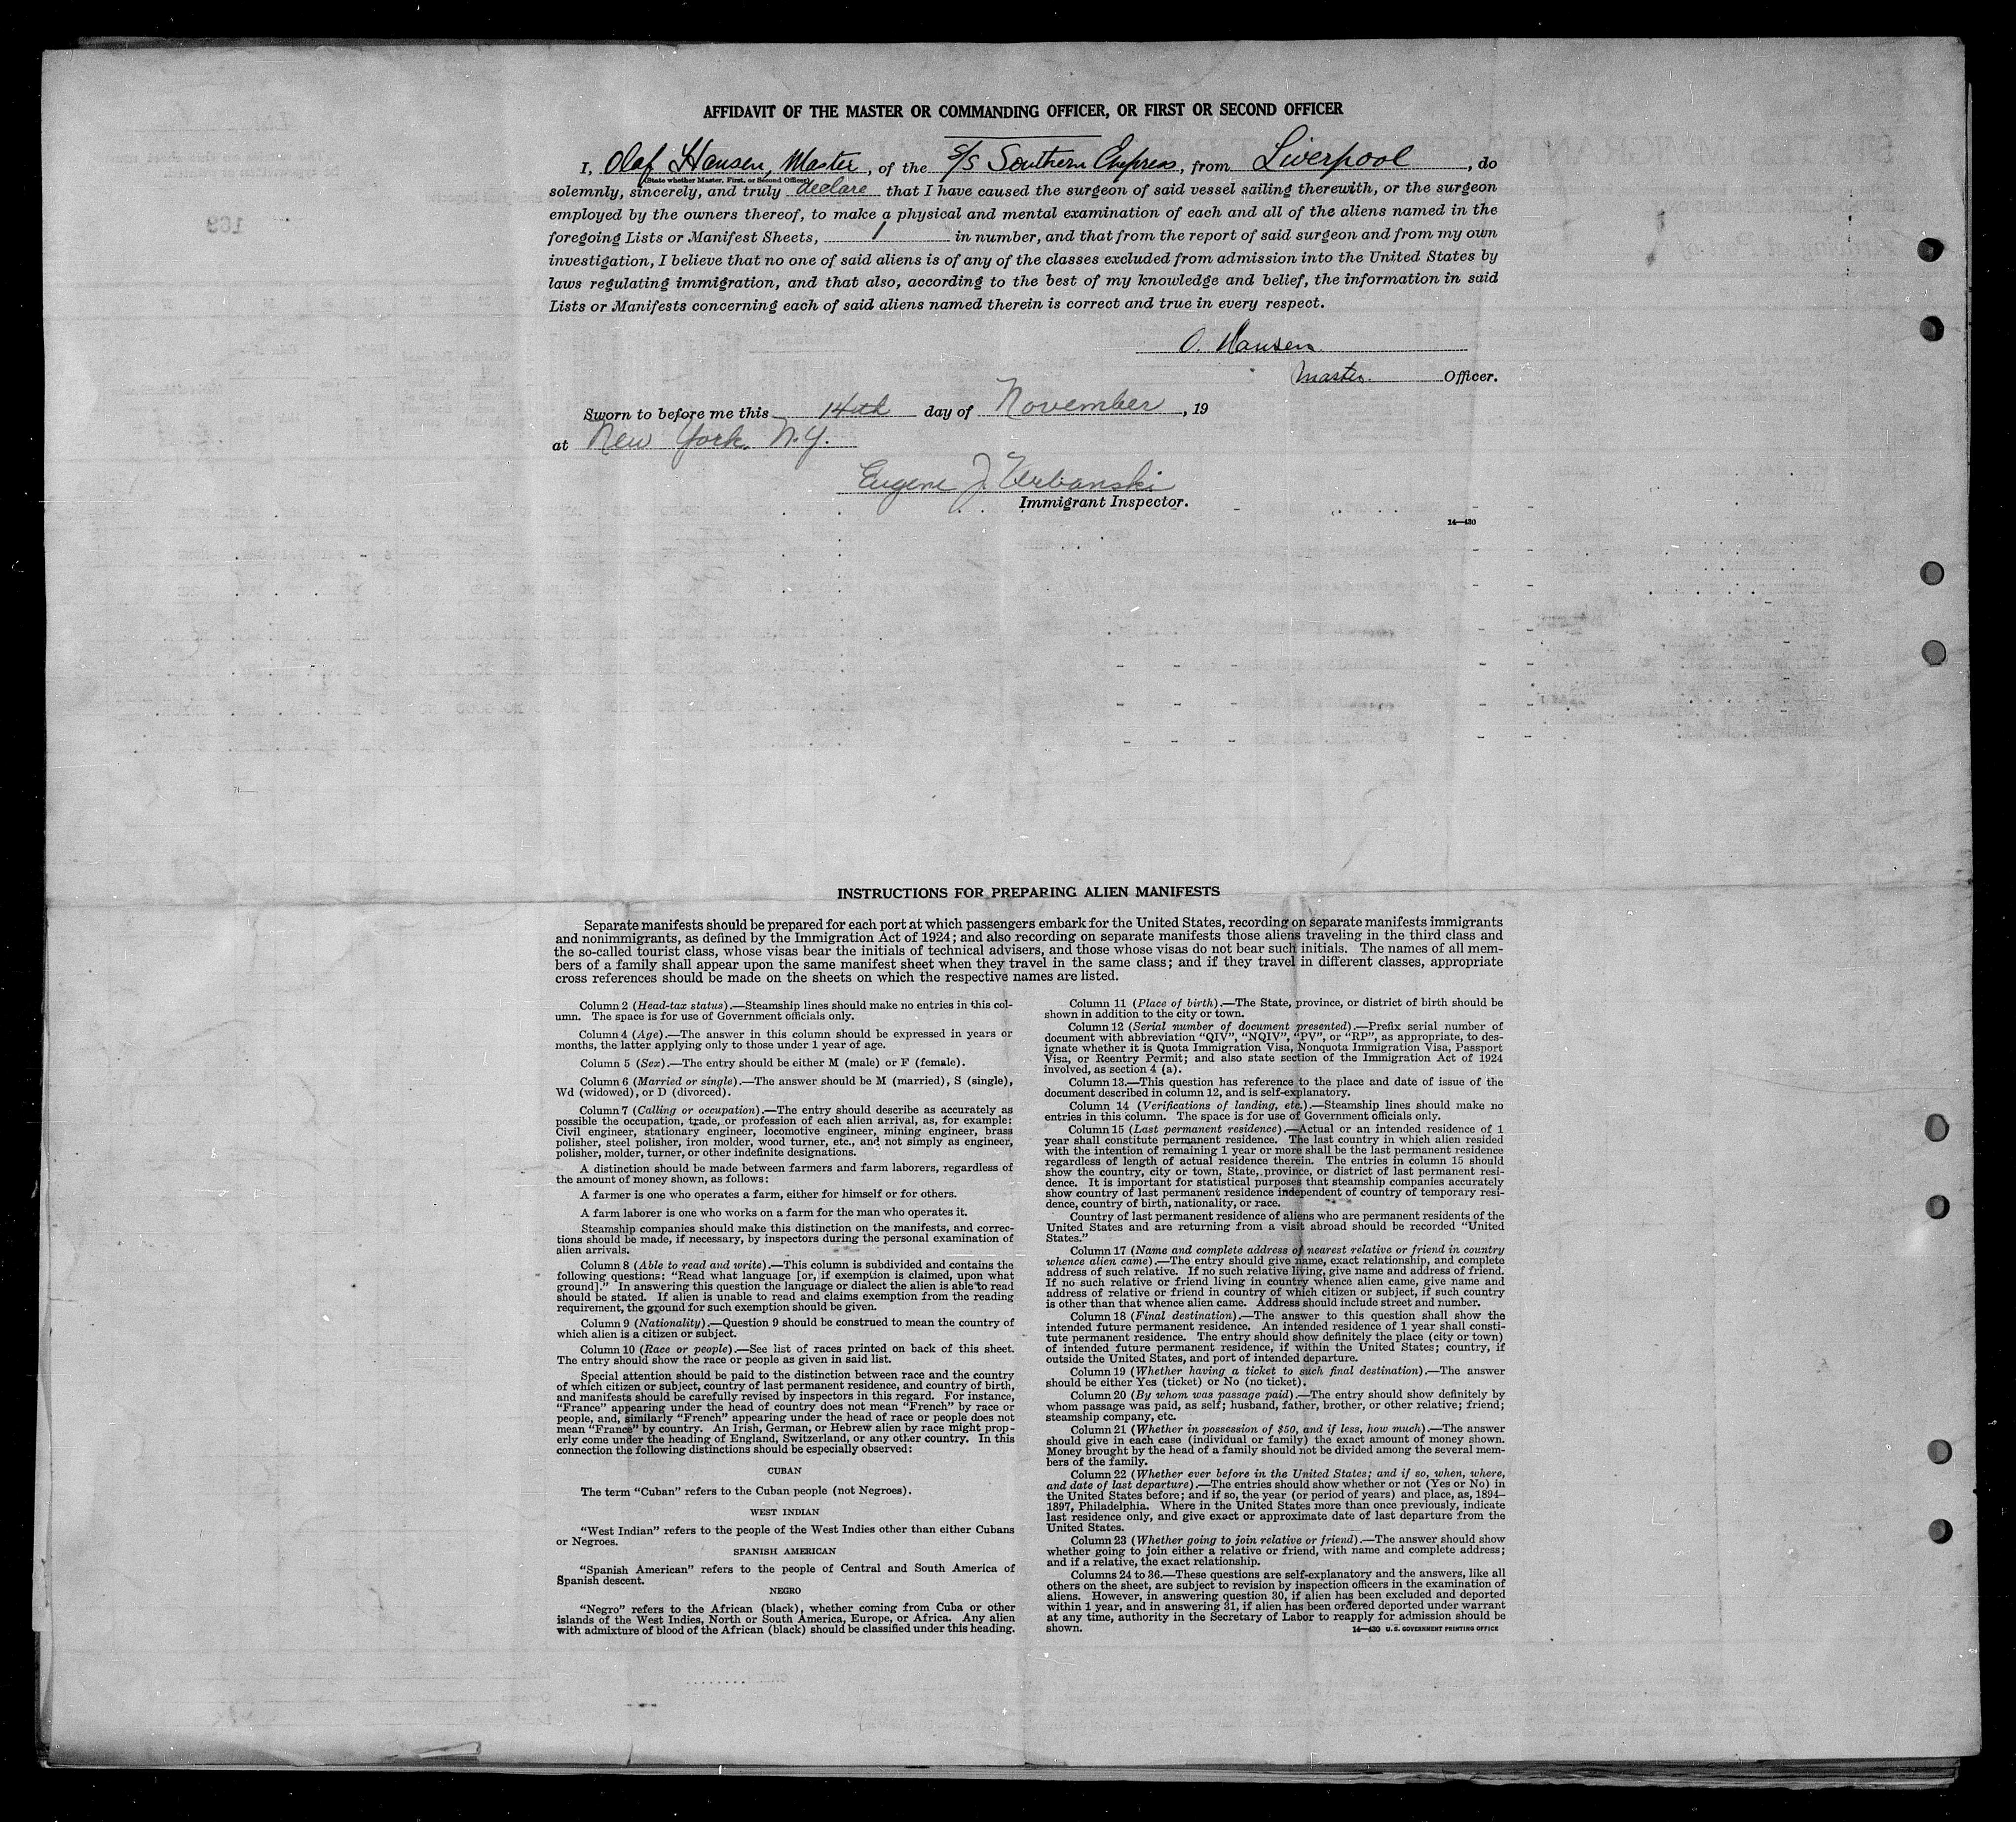 AFFIDAVIT OF THE MASTER OR COMMANDING OFFICER, OR FIRST OR SECOND OFFICER
I, Olaf Hansen, Master, of the S/S Southern Express, from Liverpool, do
(State whether Master, First, or Second Officer)
solemnly, sincerely, and truly declare that I have caused the surgeon of said vessel sailing therewith, or the surgeon
employed by the owners thereof, to make a physical and mental examination of each and all of the aliens named in the
foregoing Lists or Manifest Sheets, 1 in number, and that from the report of said surgeon and from my own
investigation, I believe that no one of said aliens is of any of the classes excluded from admission into the United States by
laws regulating immigration, and that also, according to the best of my knowledge and belief, the information in said
Lists or Manifests concerning each of said aliens named therein is correct and true in every respect.
O. Hansen
Master. Officer.
Sworn to before me this 14th day of November, 19
at New York, N.Y.
Eugene J. Urbanski
Immigrant Inspector.
14—430
169
INSTRUCTIONS FOR PREPARING ALIEN MANIFESTS
Separate manifests should be prepared for each port at which passengers embark for the United States, recording on separate manifests immigrants
and nonimmigrants, as defined by the Immigration Act of 1924; and also recording on separate manifests those aliens traveling in the third class and
the so-called tourist class, whose visas bear the initials of technical advisers, and those whose visas do not bear such initials. The names of all mem-
bers of a family shall appear upon the same manifest sheet when they travel in the same class; and if they travel in different classes, appropriate
cross references should be made on the sheets on which the respective names are listed.
Column 2 (Head-tax status).—Steamship lines should make no entries in this col-
umn. The space is for use of Government officials only.
Column 4 (Age).—The answer in this column should be expressed in years or
months, the latter applying only to those under 1 year of age.
Column 5 (Sex).—The entry should be either M (male) or F (female).
Column 6 (Married or single).—The answer should be M (married), S (single),
Wd (widowed), or D (divorced).
Column 7 (Calling or occupation).—The entry should describe as accurately as
possible the occupation, trade, or profession of each alien arrival, as, for example:
Civil engineer, stationary engineer, locomotive engineer, mining engineer, brass
polisher, steel polisher, iron molder, wood turner, etc., and not simply as engineer,
polisher, molder, turner, or other indefinite designations.
A distinction should be made between farmers and farm laborers, regardless of
the amount of money shown, as follows:
A farmer is one who operates a farm, either for himself or for others.
A farm laborer is one who works on a farm for the man who operates it.
Steamship companies should make this distinction on the manifests, and correc-
tions should be made, if necessary, by inspectors during the personal examination of
alien arrivals.
Column 8 (Able to read and write).—This column is subdivided and contains the
following questions: “Read what language [or, if exemption is claimed, upon what
ground].” In answering this question the language or dialect the alien is able to read
should be stated. If alien is unable to read and claims exemption from the reading
requirement, the ground for such exemption should be given.
Column 9 (Nationality).—Question 9 should be construed to mean the country of
which alien is a citizen or subject.
Column 10 (Race or people).—See list of races printed on back of this sheet.
The entry should show the race or people as given in said list.
Special attention should be paid to the distinction between race and the country
of which citizen or subject, country of last permanent residence, and country of birth,
and manifests should be carefully revised by inspectors in this regard. For instance,
“France” appearing under the head of country does not mean “French” by race or
people, and, similarly “French” appearing under the head of race or people does not
mean “France” by country. An Irish, German, or Hebrew alien by race might prop-
erly come under the heading of England, Switzerland, or any other country. In this
connection the following distinctions should be especially observed:
CUBAN
The term “Cuban” refers to the Cuban people (not Negroes).
WEST INDIAN
“West Indian” refers to the people of the West Indies other than either Cubans
or Negroes.
SPANISH AMERICAN
“Spanish American” refers to the people of Central and South America of
Spanish descent.
NEGRO
“Negro” refers to the African (black), whether coming from Cuba or other
islands of the West Indies, North or South America, Europe, or Africa. Any alien
with admixture of blood of the African (black) should be classified under this heading.
Column 11 (Place of birth).—The State, province, or district of birth should be
shown in addition to the city or town.
Column 12 (Serial number of document presented).—Prefix serial number of
document with abbreviation “QIV”, “NQIV”, “PV”, or “RP”, as appropriate, to des-
ignate whether it is Quota Immigration Visa, Nonquota Immigration Visa, Passport
Visa, or Reentry Permit; and also state section of the Immigration Act of 1924
involved, as section 4 (a).
Column 13.—This question has reference to the place and date of issue of the
document described in column 12, and is self-explanatory.
Column 14 (Verifications of landing, etc.).—Steamship lines should make no
entries in this column. The space is for use of Government officials only.
Column 15 (Last permanent residence).—Actual or an intended residence of 1
year shall constitute permanent residence. The last country in which alien resided
with the intention of remaining 1 year or more shall be the last permanent residence
regardless of length of actual residence therein. The entries in column 15 should
show the country, city or town, State, province, or district of last permanent resi-
dence. It is important for statistical purposes that steamship companies accurately
show country of last permanent residence independent of country of temporary resi-
dence, country of birth, nationality, or race.
Country of last permanent residence of aliens who are permanent residents of the
United States and are returning from a visit abroad should be recorded “United
States.”
Column 17 (Name and complete address of nearest relative or friend in country
whence alien came).—The entry should give name, exact relationship, and complete
address of such relative. If no such relative living, give name and address of friend.
If no such relative or friend living in country whence alien came, give name and
address of relative or friend in country of which citizen or subject, if such country
is other than that whence alien came. Address should include street and number.
Column 18 (Final destination).—The answer to this question shall show the
intended future permanent residence. An intended residence of 1 year shall consti-
tute permanent residence. The entry should show definitely the place (city or town)
of intended future permanent residence, if within the United States; country, if
outside the United States, and port of intended departure.
Column 19 (Whether having a ticket to such final destination).—The answer
should be either Yes (ticket) or No (no ticket).
Column 20 (By whom was passage paid).—The entry should show definitely by
whom passage was paid, as self; husband, father, brother, or other relative; friend;
steamship company, etc.
Column 21 (Whether in possession of $50, and if less, how much).—The answer
should give in each case (individual or family) the exact amount of money shown.
Money brought by the head of a family should not be divided among the several mem-
bers of the family.
Column 22 (Whether ever before in the United States; and if so, when, where,
and date of last departure).—The entries should show whether or not (Yes or No) in
the United States before; and if so, the year (or period of years) and place, as, 1894–
1897, Philadelphia. Where in the United States more than once previously, indicate
last residence only, and give exact or approximate date of last departure from the
United States.
Column 23 (Whether going to join relative or friend).—The answer should show
whether going to join either a relative or friend, with name and complete address;
and if a relative, the exact relationship.
Columns 24 to 36.—These questions are self-explanatory and the answers, like all
others on the sheet, are subject to revision by inspection officers in the examination of
aliens. However, in answering question 30, if alien has been excluded and deported
within 1 year, and in answering 31, if alien has been ordered deported under warrant
at any time, authority in the Secretary of Labor to reapply for admission should be
shown.
14—430 U. S. GOVERNMENT PRINTING OFFICE